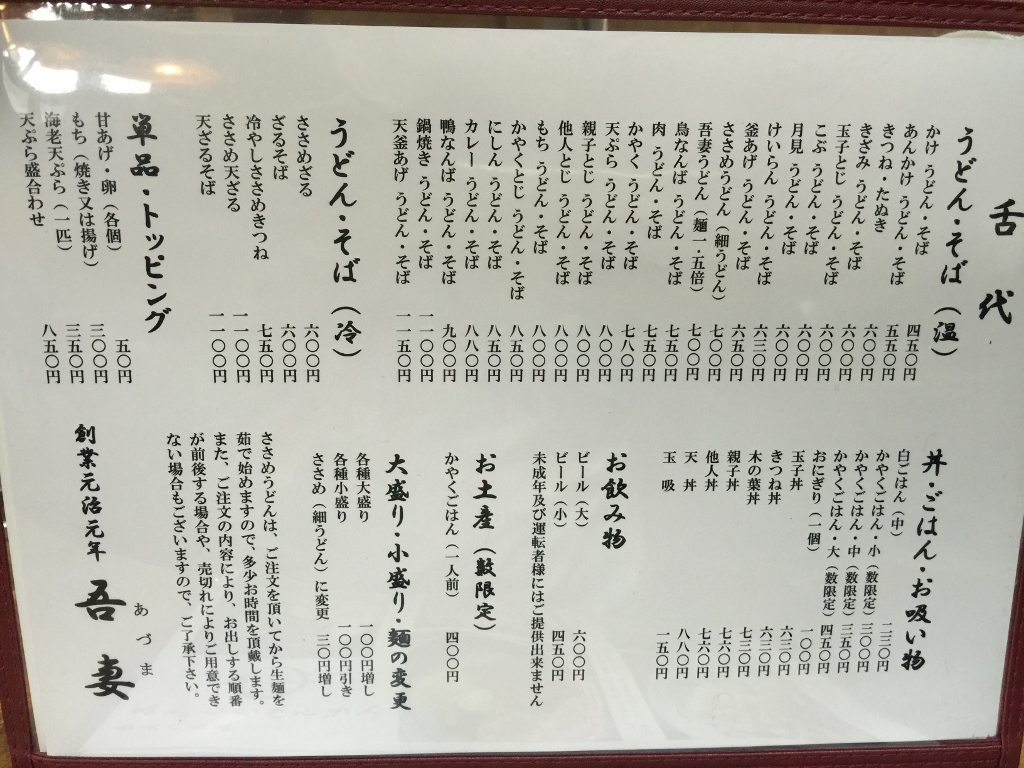 舌代
うどん・そば（温）
かけ うどん・そば 四五〇円
あんかけ うどん・そば 五五〇円
きつね・たぬき 五五〇円
きざみ うどん・そば 六〇〇円
玉子とじ うどん・そば 六〇〇円
こぶ うどん・そば 六〇〇円
月見 うどん・そば 六〇〇円
けいらん うどん・そば 六三〇円
釜あげ うどん・そば 六五〇円
ささめうどん（細うどん） 七〇〇円
吾妻うどん（麺一・五倍） 七〇〇円
鳥なんば うどん・そば 七五〇円
肉 うどん・そば 七五〇円
かやく うどん・そば 七八〇円
天ぷら うどん・そば 八〇〇円
親子とじ うどん・そば 八〇〇円
他人とじ うどん・そば 八〇〇円
もち うどん・そば 八〇〇円
かやくとじ うどん・そば 八五〇円
にしん うどん・そば 八五〇円
カレー うどん・そば 八八〇円
鴨なんば うどん・そば 九〇〇円
鍋焼き うどん・そば 一一〇〇円
天釜あげ うどん・そば 一一五〇円
うどん・そば（冷）
ささめざる 六〇〇円
ざるそば 六〇〇円
冷やしささめきつね 七五〇円
ささめ天ざる 一一〇〇円
天ざるそば 一一〇〇円
単品・トッピング
甘あげ・卵（各個） 五〇円
もち（焼き又は揚げ） 三〇〇円
海老天ぷら（一匹） 三五〇円
天ぷら盛合わせ 八五〇円
丼・ごはん・お吸い物
白ごはん（中） 一三〇円
かやくごはん・小（数限定） 三〇〇円
かやくごはん・中（数限定） 三五〇円
かやくごはん・大（数限定） 四五〇円
おにぎり（一個） 一〇〇円
玉子丼 六三〇円
きつね丼 六三〇円
木の葉丼 七三〇円
親子丼 七六〇円
他人丼 七六〇円
天丼 八八〇円
玉吸 一五〇円
お飲み物
ビール（大） 六〇〇円
ビール（小） 四五〇円
未成年及び運転者様にはご提供出来ません
お土産（数限定）
かやくごはん（一人前） 四〇〇円
大盛り・小盛り・麺の変更
各種大盛り 一〇〇円増し
各種小盛り 一〇〇円引き
ささめ（細うどん）に変更 三〇円増し
ささめうどんは、ご注文を頂いてから生麺を
茹で始めますので、多少お時間を頂戴します。
また、ご注文の内容により、お出しする順番
が前後する場合や、売切れによりご用意でき
ない場合もございますので、ご了承下さい。
創業元治元年 吾妻
あづま